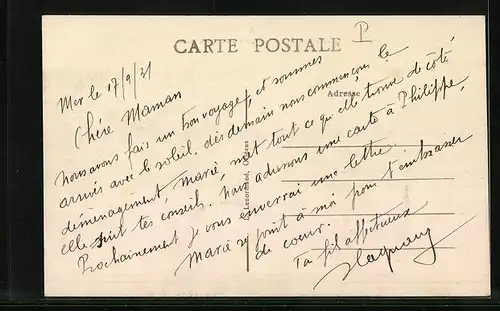 P
CARTE POSTALE
Adresse
Lenormand, Orléans
Mer le 17/9/31
Chère Maman
nous avons fais un bon voyage, et sommes
arrivés avec le soleil. dès demain nous commençons le
déménagement, Marie, met tout ce qu'elle trouve de côté
elle suit tes conseils. nous adressons une carte à Philippe,
Prochainement je vous enverrai une lettre.
Marie se joint à moi pour t'embrasser
de coeur.
Ta fil affectueux